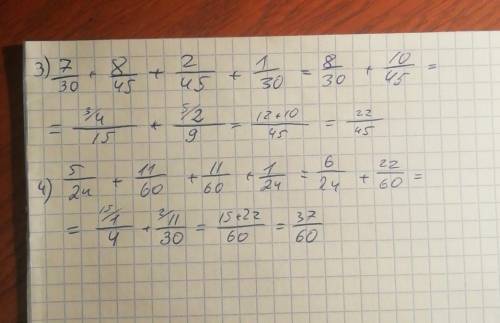 3) 7/30 + 8/45 + 2/45 + 1/30 = 8/30 + 10/45 =
= ³⁄4/15 + ⁵⁄2/9 = 12+10/45 = 22/45
4) 5/24 + 11/60 + 11/60 + 1/24 = 6/24 + 22/60 =
= ¹⁵⁄1/4 + ²⁄11/30 = 15+22/60 = 37/60